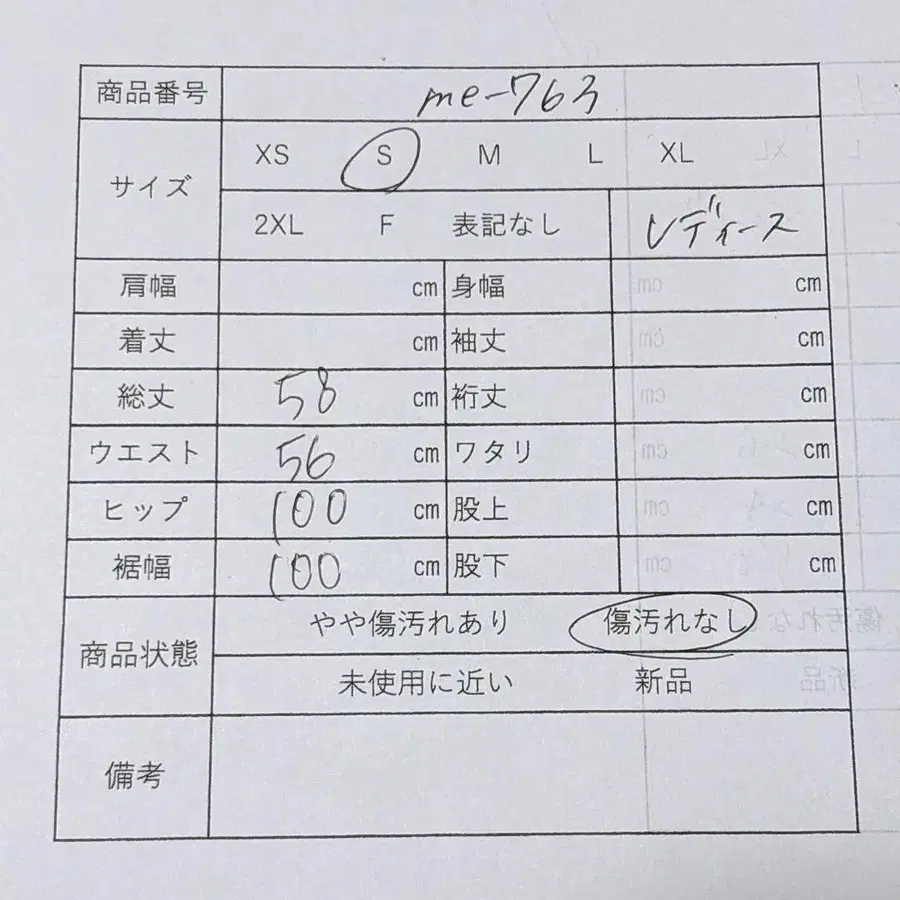 商品番号 me-763
サイズ XS S M L XL
2XL F 表記なし レディース
肩幅 cm 身幅 cm
着丈 cm 袖丈 cm
総丈 58 cm 裄丈 cm
ウエスト 56 cm ワタリ cm
ヒップ 100 cm 股上 cm
裾幅 100 cm 股下 cm
商品状態 やや傷汚れあり 傷汚れなし
未使用に近い 新品
備考